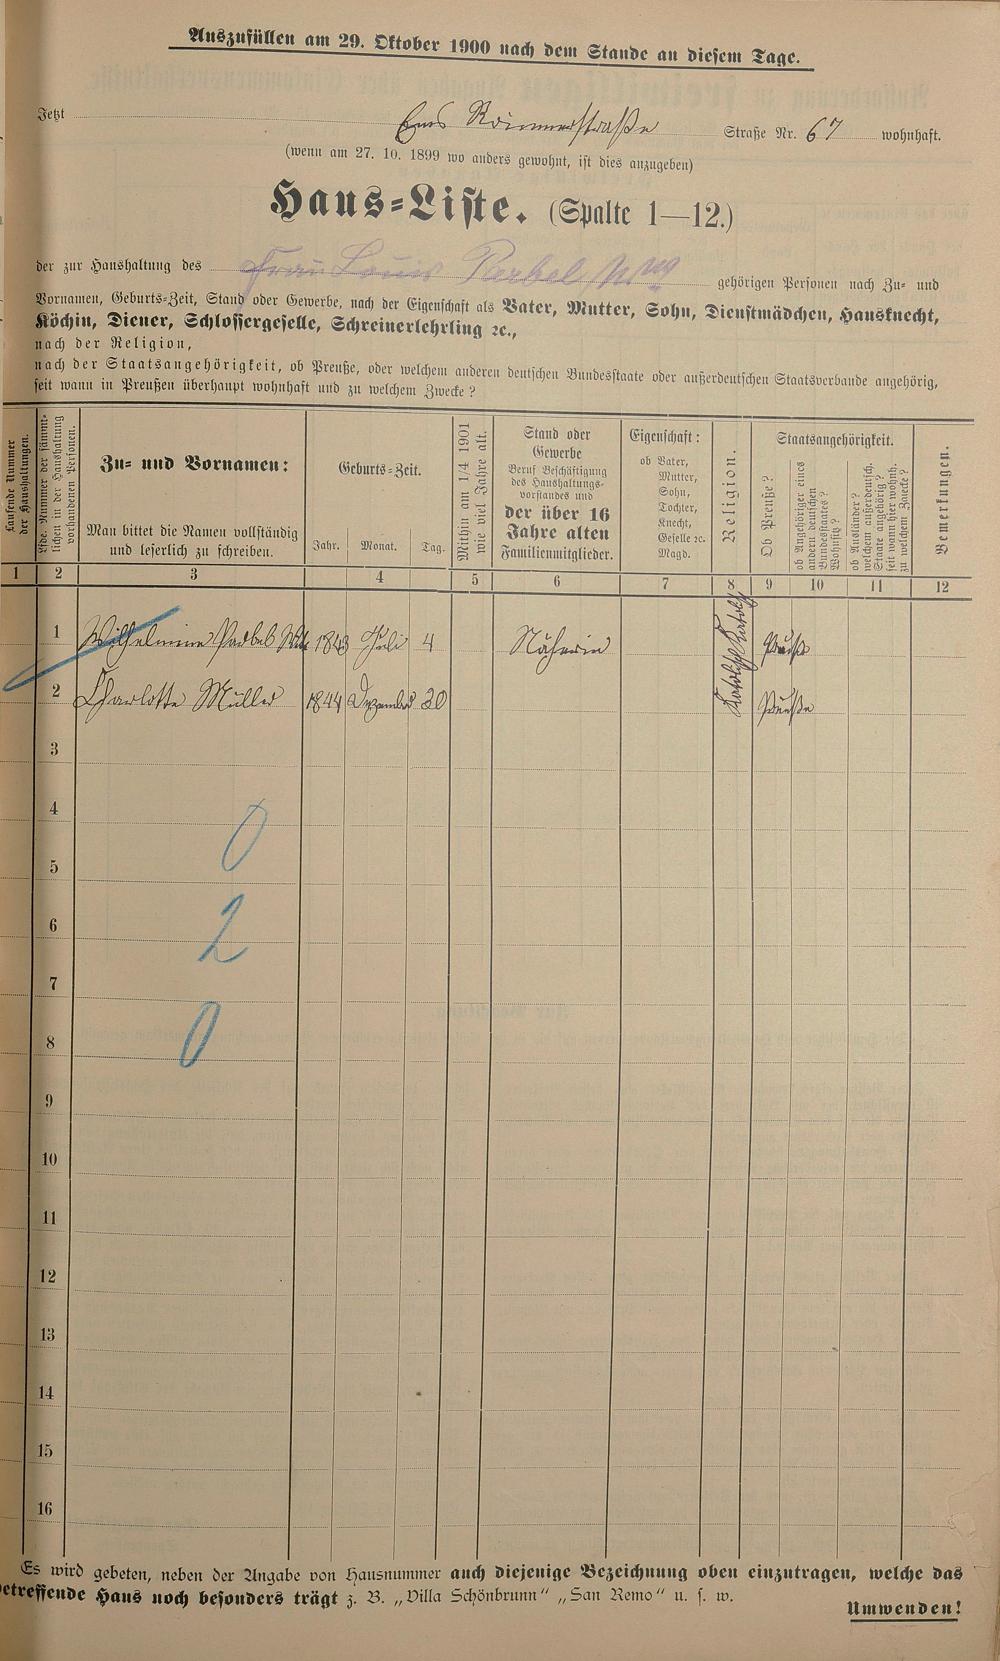 Auszufüllen am 29. Oktober 1900 nach dem Stande an diesem Tage.
Jetzt Ems Römerstraße Straße Nr. 67 wohnhaft.
(wenn am 27. 10. 1899 wo anders gewohnt, ist dies anzugeben)
Haus-Liste. (Spalte 1—12.)
der zur Haushaltung des Frau Louis Parbel Wwe gehörigen Personen nach Zu- und
Vornamen, Geburts-Zeit, Stand oder Gewerbe, nach der Eigenschaft als Vater, Mutter, Sohn, Dienstmädchen, Hausknecht,
Köchin, Diener, Schlossergeselle, Schreinerlehrling ꝛc.,
nach der Religion,
nach der Staatsangehörigkeit, ob Preuße, oder welchem anderen deutschen Bundesstaate oder außerdeutschen Staatsverbande angehörig,
seit wann in Preußen überhaupt wohnhaft und zu welchem Zwecke?
Laufende Nummer
der Haushaltungen.
Lfde. Nummer der sämmt-
lichen in der Haushaltung
vorhandenen Personen.
Zu- und Vornamen:
Man bittet die Namen vollständig
und leserlich zu schreiben.
Geburts-Zeit.
Jahr. Monat. Tag.
Mithin am 1/4 1901
wie viel Jahre alt.
Stand oder
Gewerbe
Beruf Beschäftigung
des Haushaltungs-
vorstandes und
der über 16
Jahre alten
Familienmitglieder.
Eigenschaft:
ob Vater,
Mutter,
Sohn,
Tochter,
Knecht,
Geselle ꝛc.
Magd.
Religion.
Staatsangehörigkeit.
Ob Preuße?
ob Angehöriger eines
andern deutschen
Bundesstaates?
Wohnsitz?
ob Ausländer?
welchem außerdeutsch.
Staate angehörig?
seit wann hier wohnh.
zu welchem Zwecke?
Bemerkungen.
1 2 3 4 5 6 7 8 9 10 11 12
1 Wilhelmine Parbel Wwe 1843 Juli 4 Näherin Katolisch Preuße
2 Charlotte Müller 1844 Dezember 20 Katolisch Preuße
3
4
0
5
6
2
7
8
0
9
10
11
12
13
14
15
16
Es wird gebeten, neben der Angabe von Hausnummer auch diejenige Bezeichnung oben einzutragen, welche das
betreffende Haus noch besonders trägt z. B. „Villa Schönbrunn" „San Remo" u. s. w.
Umwenden!